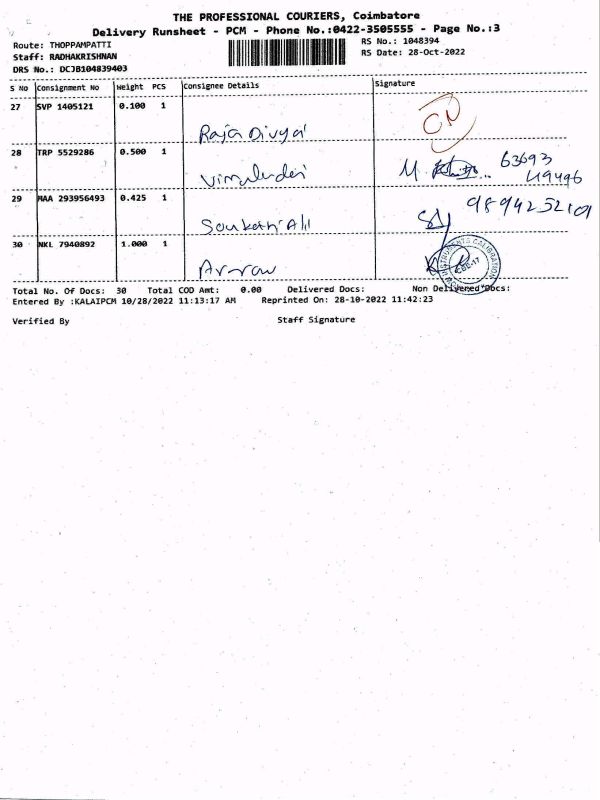 THE PROFESSIONAL COURIERS, Coimbatore
Delivery Runsheet - PCM - Phone No.:0422-3505555 - Page No.:3
Route: THOPPAMPATTI
RS No.: 1048394
Staff: RADHAKRISHNAN
RS Date: 28-Oct-2022
DRS No.: DCJB104839403
S No Consignment No Weight PCS Consignee Details Signature
27 SVP 1405121 0.100 1
Raja Divya
28 TRP 5529286 0.500 1
63693
M.
49496
29 MAA 293956493 0.425 1
9894252109
Soukath Ali
30 NKL 7940892 1.000 1
Arrow
INSTRUMENTS CALIBRATION
Total No. Of Docs: 30 Total COD Amt: 0.00 Delivered Docs: Non Delivered Docs:
Entered By :KALAIPCM 10/28/2022 11:13:17 AM Reprinted On: 28-10-2022 11:42:23
Verified By Staff Signature